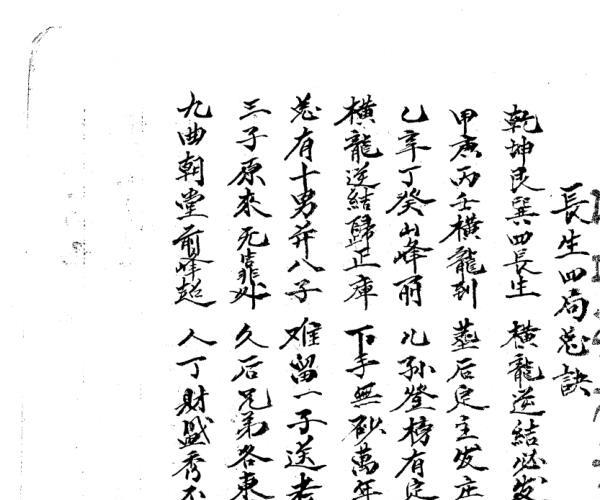 長生四局总訣
乾坤艮巽四長生 橫龍逆結必发
甲庚丙壬橫龍到 墓后定主发庄
乙辛丁癸山峰丽 儿孙登榜有定
橫龍逆結歸正庫 下手無砂萬年
总有十男并八子 难留一子送老
三子原來死靠外 久后兄弟各東
九曲朝堂前峰起 人丁財盛秀不